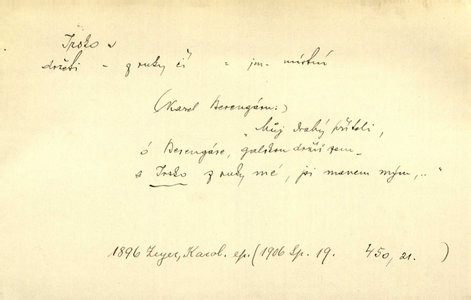 Irsko
držeti - z ruky čí = jm. místní
(Karel Berengáru:)
"Můj drahý příteli,
ó Berengáre, galskou držíš zem
a Irsko z ruky mé, jsi manem mým,.."
1896 Zeyer, Karol. ep. (1906 Sp. 19. 450, 21. )